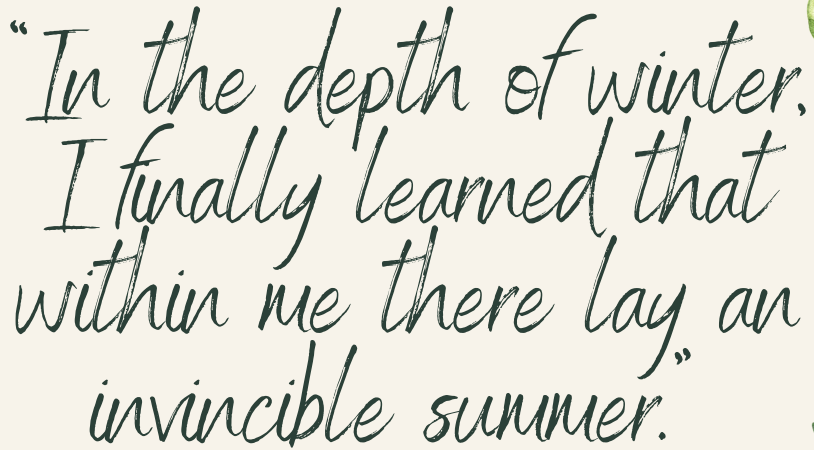 “In the depth of winter,
I finally learned that
within me there lay an
invincible summer.”